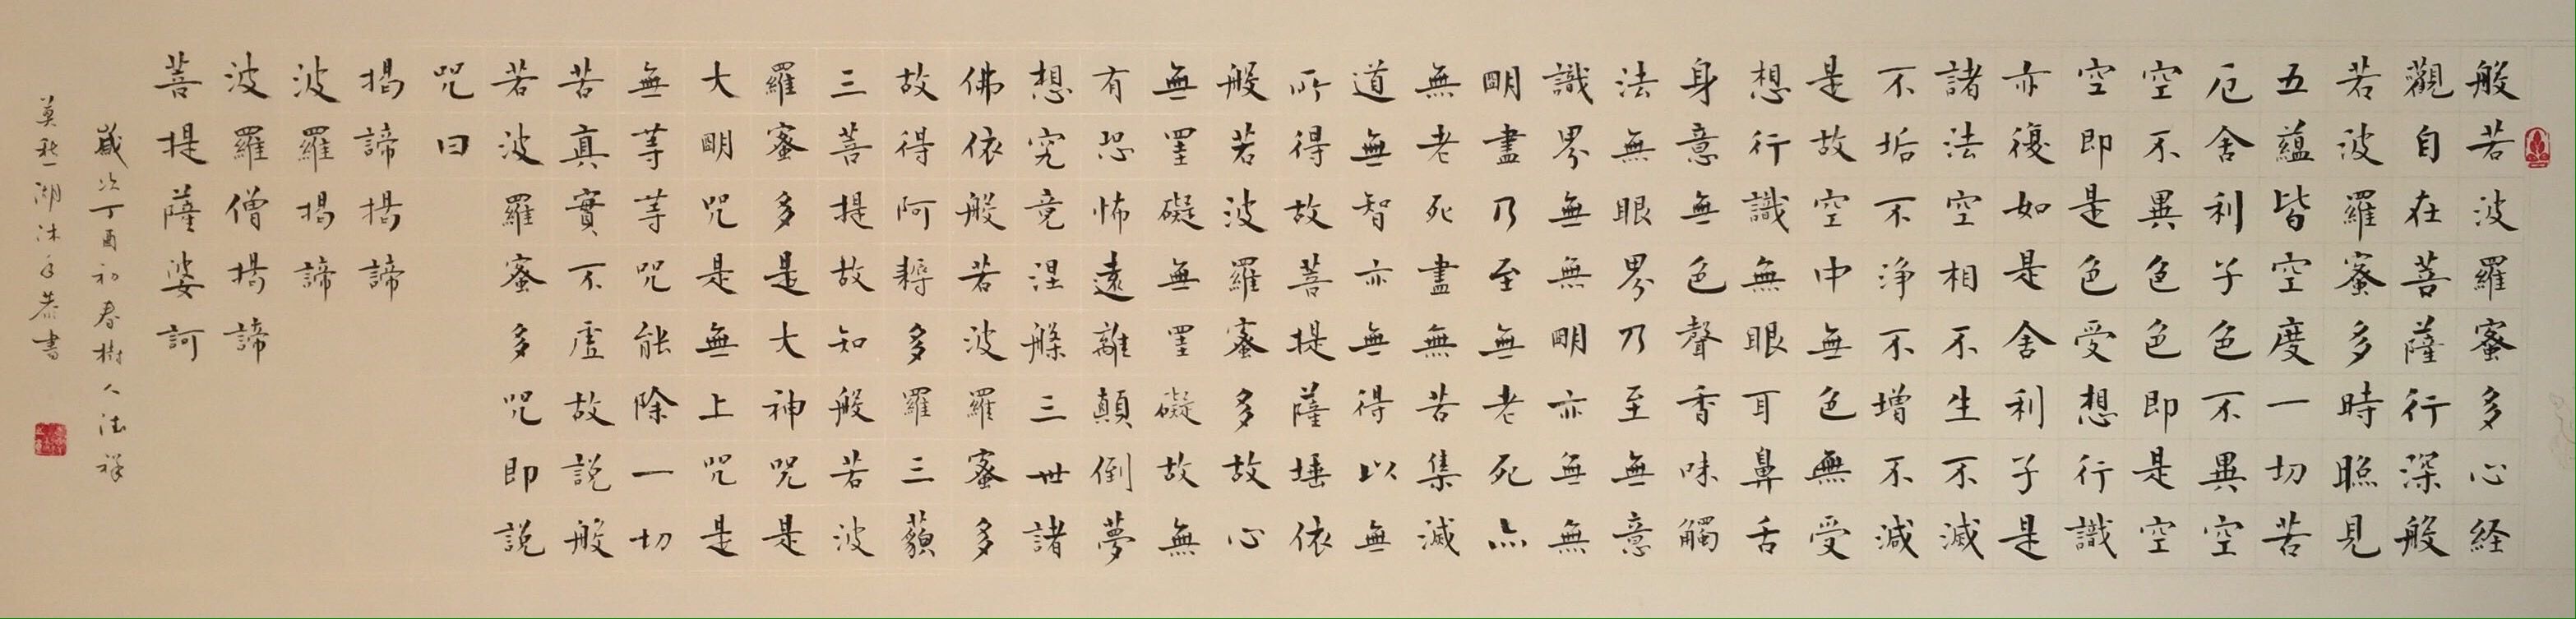 般若波羅蜜多心経
觀自在菩薩行深般
若波羅蜜多時照見
五蘊皆空度一切苦
厄舍利子色不異空
空不異色色即是空
空即是色受想行識
亦復如是舍利子是
諸法空相不生不滅
不垢不淨不增不減
是故空中無色無受
想行識無眼耳鼻舌
身意無色聲香味觸
法無眼界乃至無意
識界無無眀亦無無
眀盡乃至無老死亦
無老死盡無苦集滅
道無智亦無得以無
所得故菩提薩埵依
般若波羅蜜多故心
無罣礙無罣礙故無
有恐怖遠離顛倒夢
想究竟涅槃三世諸
佛依般若波羅蜜多
故得阿耨多羅三藐
三菩提故知般若波
羅蜜多是大神咒是
大眀咒是無上咒是
無等等咒能除一切
苦真實不虛故説般
若波羅蜜多咒即説
咒曰
揭諦揭諦
波羅揭諦
波羅僧揭諦
菩提薩婆訶
歲次丁酉初春樹人法祥
莫愁湖沐手恭書